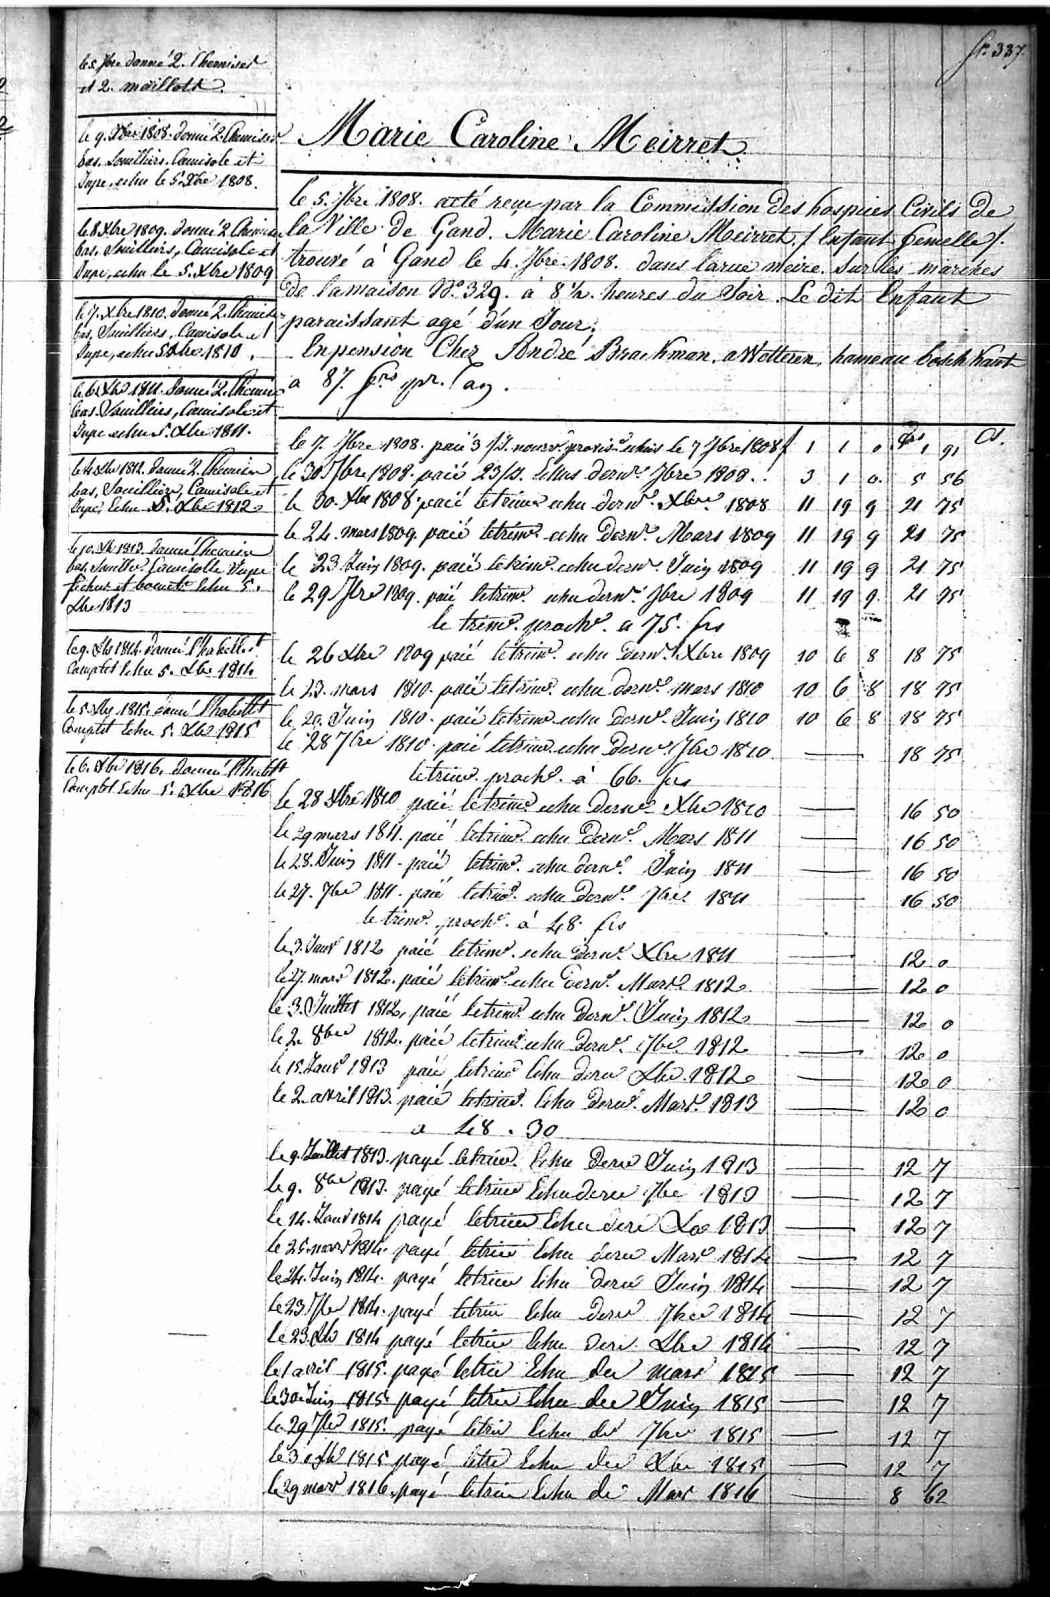 fo. 337
le 5 7bre donné 2. Chemises
et 2. maillots.
le 9. Xbre 1808. donné 2. Chemises
bas. Souilliers. Camisole et
Jupe. echu le 5. Xbre 1808.
le 8 Xbre 1809. donné 2 Chemises
bas. Souilliers, Camisole et
Jupe, echu le 5. Xbre 1809
le 7. Xbre 1810. donné 2. Chemises
bas, Souilliers, Camisole et
Jupe, echu 5 Xbre 1810.
le 6 Xbre 1811. donné 2. Chemises
bas. Souilliers, Camisole et
Jupe echu 5. Xbre 1811.
le 4 Xbre 1812. donné 2. Chemises
bas, Souilliers, Camisole et
Jupe, Echu 5. Xbre 1812
le 10. Xb 1813. donné Chemises
bas. Soullie. Camisolle Jupe
fichu et bonets Echu 5.
Xbre 1813
le 9. Xb 1814 donné l'habillet
Complet Echu 5. Xbre 1814
le 5. Xb 1815. donné l'habillet
Complet Echu 5. Xbr 1815
le 6. Xbr 1816. donné l'habilt
Complet Echu 5. Xbre 1816
Marie Caroline Meirret
le 5. 7bre 1808. acté reçu par la Commission des hospices Civils de
la Ville de Gand. Marie Caroline Meirret / Enfant femelle /.
trouvé à Gand le 4. 7bre 1808. dans la rue meire. Sur les marches
de la maison No. 329. à 8 1/2. heures du Soir. Le dit Enfant
paraissant agé d'un Jour.
En pension Chez André Brackman. a Wetteren, hameau bosch kant
a 87. frs pr. l'an.
frs Cs.
le 7. 7bre 1808. paié 3 nourre provisre echais le 7 7bre 1808 1 1 0 1 91
le 30 7bre 1808. paié 23 Echus dernr. 7bre 1808. 3 1 0. 5 56
le 30. Xbre 1808. paié le trimre echu dernr. Xbre. 1808 11 19 9 21 75
le 24. mars 1809. paié le trimre. echu dernr. Mars 1809 11 19 9 21 75
le 23. Juin 1809. paié le trimre. echu dernr. Juin 1809 11 19 9 21 75
le 29 7bre 1809. paié le trimre. echu dernr. 7bre 1809 11 19 9 21 75
le trimre. prochr. a 75. frs
le 26 Xbre 1809 paié le trimre. echu dernr. Xbre 1809 10 6 8 18 75
le 23. mars 1810. paié le trimre. echu dernr. mars 1810 10 6 8 18 75
le 20. Juin 1810. paié le trimre. echu dernr. Juin 1810 10 6 8 18 75
le 28 7bre 1810. paié le trimre. echu dernr. 7bre 1810 — 18 75
le trimre prochr. à 66. frs
le 28 Xbre 1810 paié le trimre. echu dernr. Xbre 1810 — 16 50
le 29 mars 1811. paié le trimre. echu dernr. Mars 1811 — 16 50
le 28. Juin 1811. paié le trimre. echu dernr. Juin 1811 — 16 50
le 27. 7bre 1811. paié le trimre. echu dernr. 7bre 1811 — 16 50
le trimre. prochr. à 48. frs
le 3. Janr 1812 paié le trimre. echu dernr. Xbre 1811 — 12 0
le 27. mars 1812. paié le trimre. echu dernr. Mars 1812 — 12 0
le 3. Juillet 1812, paié le trimre. echu dernr. Juin 1812 — 12 0
le 2. 8bre 1812. paié le trimre. echu dernr. 7bre. 1812 — 12 0
le 15. Janr 1813 paié le trimre Echu dern Xbre. 1812 — 12 0
le 2. avril 1813. paié le trimre. Echu dernr. Mars. 1813 — 12 0
a 48. 30
le 9. Juillet 1813. payé le trim. Echu dern Juin 1813 — 12 7
le 9. 8bre 1813. payé le trim Echu dern 7bre 1813 — 12 7
le 14. Janr 1814 payé le trim Echu dern Xbre 1813 — 12 7
le 25. mars 1814. payé le trim Echu dern Mars 1814 — 12 7
le 24. Juin 1814. payé le trim Echu dern Juin 1814 — 12 7
le 23 7br 1814. payé le trim Echu dern 7bre 1814 — 12 7
le 23. Xb 1814 payé le trim Echu dern Xbre 1814 — 12 7
le 1 avril 1815. payé le trim Echu der mars 1815 — 12 7
le 30 Juin 1815 payé le trim Echu der Juin 1815 — 12 7
le 29 7br 1815. payé le trim Echu der 7bre 1815 — 12 7
le 31 Xb 1815 payé le tri Echu der Xbre 1815 — 12 7
le 29 mars 1816. payé le trim Echu de Mars 1816 — 8 62